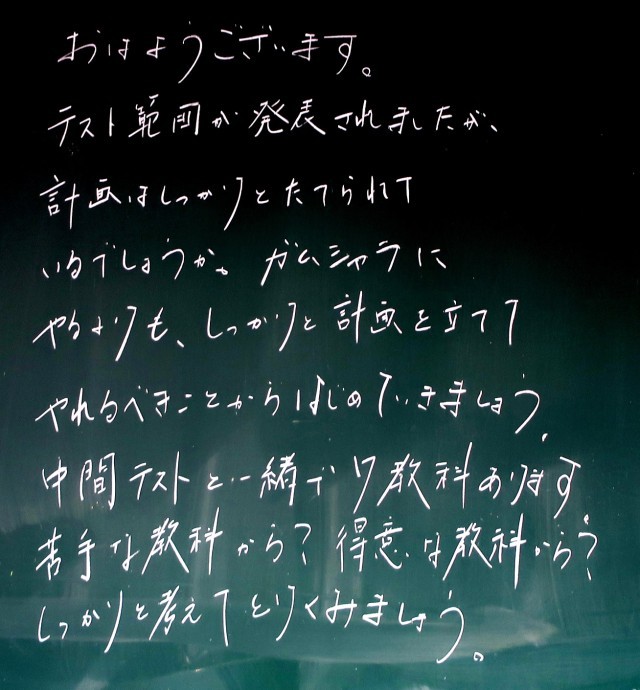 おはようございます。
テスト範囲が発表されましたが、
計画はしっかりとたてられて
いるでしょうか。ガムシャラに
やるよりも、しっかりと計画を立てて
やれるべきことからはじめていきましょう。
中間テストと一緒で7教科あります
苦手な教科から?得意な教科から?
しっかりと考えてとりくみましょう。